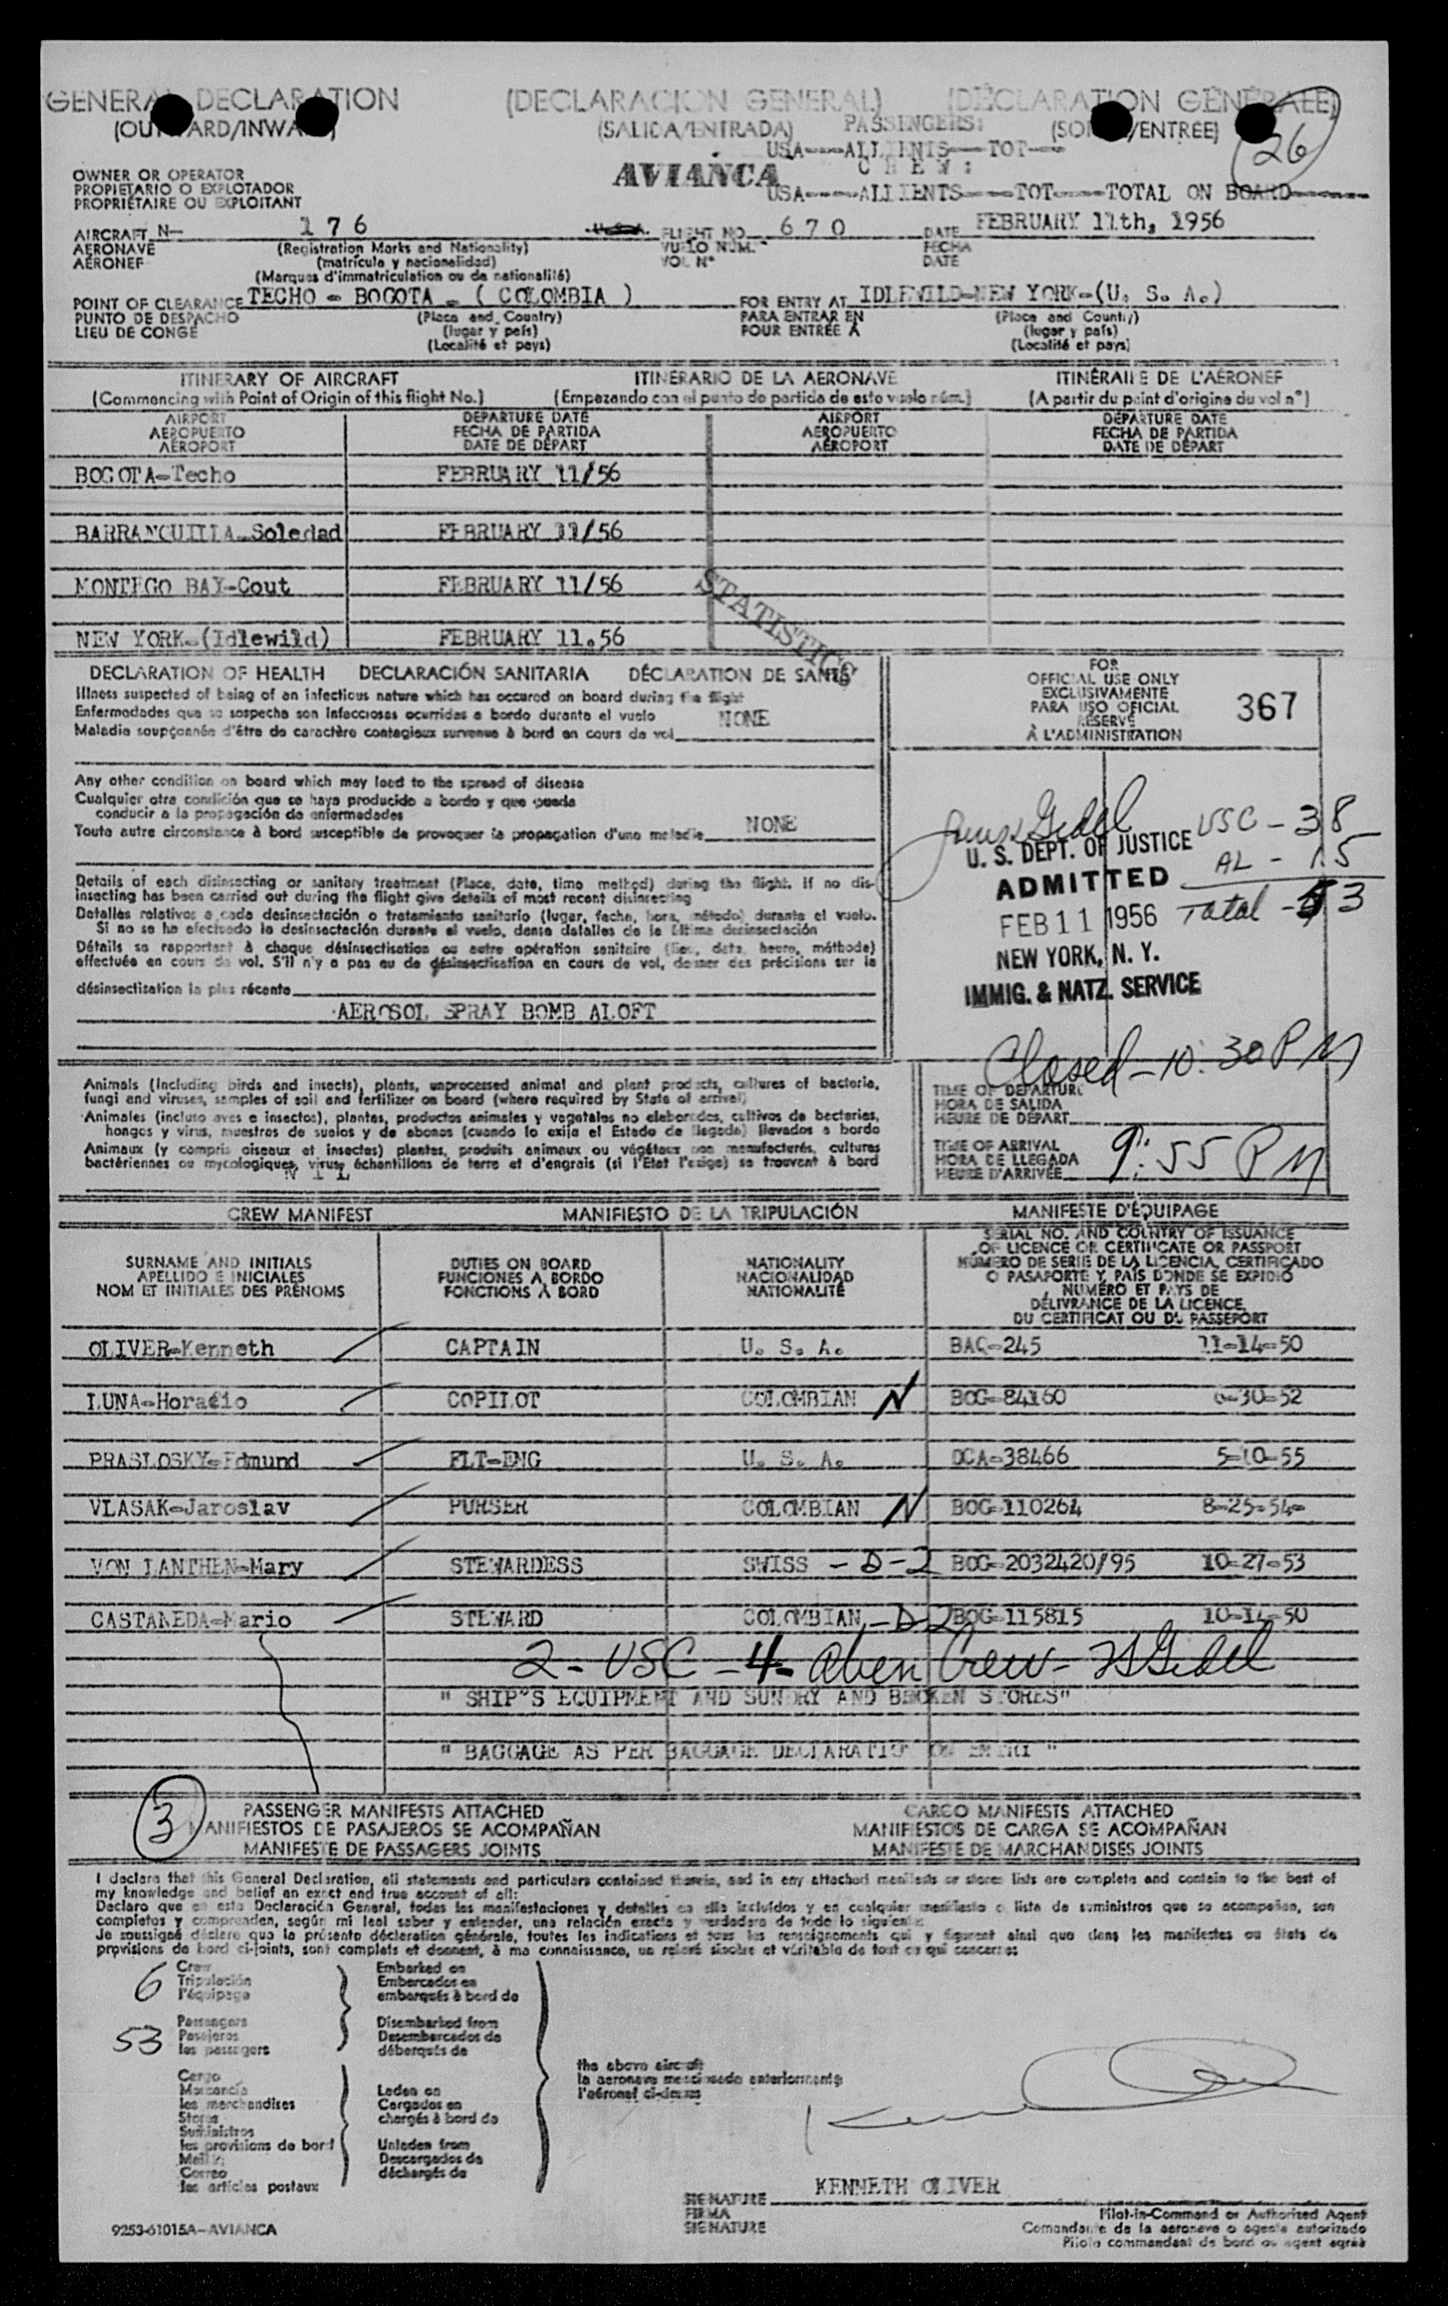 GENERAL DECLARATION (DECLARACION GENERAL) (DÉCLARATION GÉNÉRALE)
(OUTWARD/INWARD) (SALIDA/ENTRADA) PASSENGERS: (SORTIE/ENTRÉE) 26
USA----ALLIENTS----TOT----
AVIANCA C R E W :
USA----ALLIENTS----TOT----TOTAL ON BOARD----
OWNER OR OPERATOR
PROPIETARIO O EXPLOTADOR
PROPRIÉTAIRE OU EXPLOITANT
AIRCRAFT N- 176 FLIGHT NO. 670 DATE FEBRUARY 11th, 1956
AERONAVE (Registration Marks and Nationality) VUELO NUM. FECHA
AÉRONEF (matrícula y nacionalidad) VOL N° DATE
(Marques d'immatriculation ou de nationalité)
POINT OF CLEARANCE TECHO - BOGOTA - ( COLOMBIA ) FOR ENTRY AT IDLEWILD-NEW YORK-(U. S. A.)
PUNTO DE DESPACHO (Place and Country) PARA ENTRAR EN (Place and Country)
LIEU DE CONGÉ (lugar y país) POUR ENTRÉE À (lugar y país)
(Localité et pays) (Localité et pays)
ITINERARY OF AIRCRAFT ITINERARIO DE LA AERONAVE ITINÉRAIRE DE L'AÉRONEF
(Commencing with Point of Origin of this flight No.) (Empezando con el punto de partida de este vuelo núm.) (A partir du point d'origine du vol n°)
AIRPORT DEPARTURE DATE AIRPORT DEPARTURE DATE
AEROPUERTO FECHA DE PARTIDA AEROPUERTO FECHA DE PARTIDA
AÉROPORT DATE DE DÉPART AÉROPORT DATE DE DÉPART
BOGOTA-Techo FEBRUARY 11/56
BARRANQUILLA-Soledad FEBRUARY 11/56
MONTEGO BAY-Cout FEBRUARY 11/56
STATISTICS
NEW YORK-(Idlewild) FEBRUARY 11.56
DECLARATION OF HEALTH DECLARACIÓN SANITARIA DÉCLARATION DE SANTÉ
Illness suspected of being of an infectious nature which has occured on board during the flight
Enfermedades que se sospecha son infecciosas ocurridas a bordo durante el vuelo NONE
Maladie soupçonnée d'être de caractère contagieux survenue à bord en cours de vol
FOR
OFFICIAL USE ONLY
EXCLUSIVAMENTE
PARA USO OFICIAL
RÉSERVÉ
À L'ADMINISTRATION
367
Any other condition on board which may lead to the spread of disease
Cualquier otra condición que se haya producido a bordo y que pueda
conducir a la propagación de enfermedades
Toute autre circonstance à bord susceptible de provoquer la propagation d'une maladie NONE
Details of each disinsecting or sanitary treatment (Place, date, time method) during the flight. If no dis-
insecting has been carried out during the flight give details of most recent disinsecting
Detalles relativos a cada desinsectación o tratamiento sanitario (lugar, fecha, hora, método) durante el vuelo.
Si no se ha efectuado la desinsectación durante el vuelo, dense detalles de la última desinsectación
Détails se rapportant à chaque désinsectisation ou autre opération sanitaire (lieu, date, heure, méthode)
effectuée en cours de vol. S'il n'y a pas eu de désinsectisation en cours de vol, donner des précisions sur la
désinsectisation la plus récente
AEROSOL SPRAY BOMB ALOFT
USC - 38
AL - 15
Total - 53
U. S. DEPT. OF JUSTICE
ADMITTED
FEB 11 1956
NEW YORK, N. Y.
IMMIG. & NATZ. SERVICE
Closed - 10:30 PM
Animals (Including birds and insects), plants, unprocessed animal and plant products, cultures of bacteria,
fungi and viruses, samples of soil and fertilizer on board (where required by State of arrival)
Animales (incluso aves e insectos), plantas, productos animales y vegetales no elaborados, cultivos de bacterias,
hongos y virus, muestras de suelos y de abonos (cuando lo exija el Estado de llegada) llevados a bordo
Animaux (y compris oiseaux et insectes) plantes, produits animaux ou végétaux non manufacturés, cultures
bactériennes ou mycologiques, virus, échantillons de terre et d'engrais (si l'État l'exige) se trouvant à bord
N I L
TIME OF DEPARTURE
HORA DE SALIDA
HEURE DE DÉPART
TIME OF ARRIVAL
HORA DE LLEGADA
HEURE D'ARRIVÉE
9:55 PM
CREW MANIFEST MANIFIESTO DE LA TRIPULACIÓN MANIFESTE D'ÉQUIPAGE
SURNAME AND INITIALS
APELLIDO E INICIALES
NOM ET INITIALES DES PRÉNOMS
DUTIES ON BOARD
FUNCIONES A BORDO
FONCTIONS À BORD
NATIONALITY
NACIONALIDAD
NATIONALITÉ
SERIAL NO. AND COUNTRY OF ISSUANCE
OF LICENCE OR CERTIFICATE OR PASSPORT
NÚMERO DE SERIE DE LA LICENCIA, CERTIFICADO
O PASAPORTE Y PAÍS DONDE SE EXPIDIÓ
NUMÉRO ET PAYS DE
DÉLIVRANCE DE LA LICENCE,
DU CERTIFICAT OU DU PASSEPORT
OLIVER-Kenneth CAPTAIN U. S. A. BAQ-245 11-14-50
LUNA-Horacio COPILOT COLOMBIAN N BOG-84160 -30-52
PRASLOSKY-Edmund FLT-ENG U. S. A. DCA-38466 5-10-55
VLASAK-Jaroslav PURSER COLOMBIAN N BOG-110264 8-25-54-
VON LANTHEN-Mary STEWARDESS SWISS - D-2 BOG-2032420/95 10-27-53
CASTANEDA-Mario STEWARD COLOMBIAN - D2 BOG-115815 10-14-50
2 - USC - 4 - alien Crew -
" SHIP'S EQUIPMENT AND SUNDRY AND BROKEN STORES"
" BAGGAGE AS PER BAGGAGE DECLARATION ON ENTRY "
3
PASSENGER MANIFESTS ATTACHED CARGO MANIFESTS ATTACHED
MANIFIESTOS DE PASAJEROS SE ACOMPAÑAN MANIFIESTOS DE CARGA SE ACOMPAÑAN
MANIFESTE DE PASSAGERS JOINTS MANIFESTE DE MARCHANDISES JOINTS
I declare that this General Declaration, all statements and particulars contained therein, and in any attached manifests or stores lists are complete and contain to the best of
my knowledge and belief an exact and true account of all:
Declaro que en esta Declaración General, todas las manifestaciones y detalles en ella incluidos y en cualquier manifiesto o lista de suministros que se acompañan, son
completos y comprenden, según mi leal saber y entender, una relación exacta y verdadera de todo lo siguiente:
Je soussigné déclare que la présente déclaration générale, toutes les indications et tous les renseignements qui y figurent ainsi que dans les manifestes ou états de
provisions de bord ci-joints, sont complets et donnent, à ma connaissance, un relevé sincère et véritable de tout ce qui concerne:
6 Crew
Tripulación
l'équipage
Embarked on
Embarcados en
embarqués à bord de
53 Passengers
Pasajeros
les passagers
Disembarked from
Desembarcados de
débarqués de
Cargo
Mercancía
les merchendises
Stores
Suministros
les provisions de bord
Mail
Correo
les articles postaux
Laden on
Cargados en
chargés à bord de
Unladen from
Descargados de
déchargés de
the above aircraft
la aeronave mencionada anteriormente
l'aéronef ci-dessus
KENNETH OLIVER
SIGNATURE
FIRMA
SIGNATURE
Pilot-in-Command or Authorized Agent
Comandante de la aeronave o agente autorizado
Pilote commandant de bord ou agent agréé
9253-61015A-AVIANCA